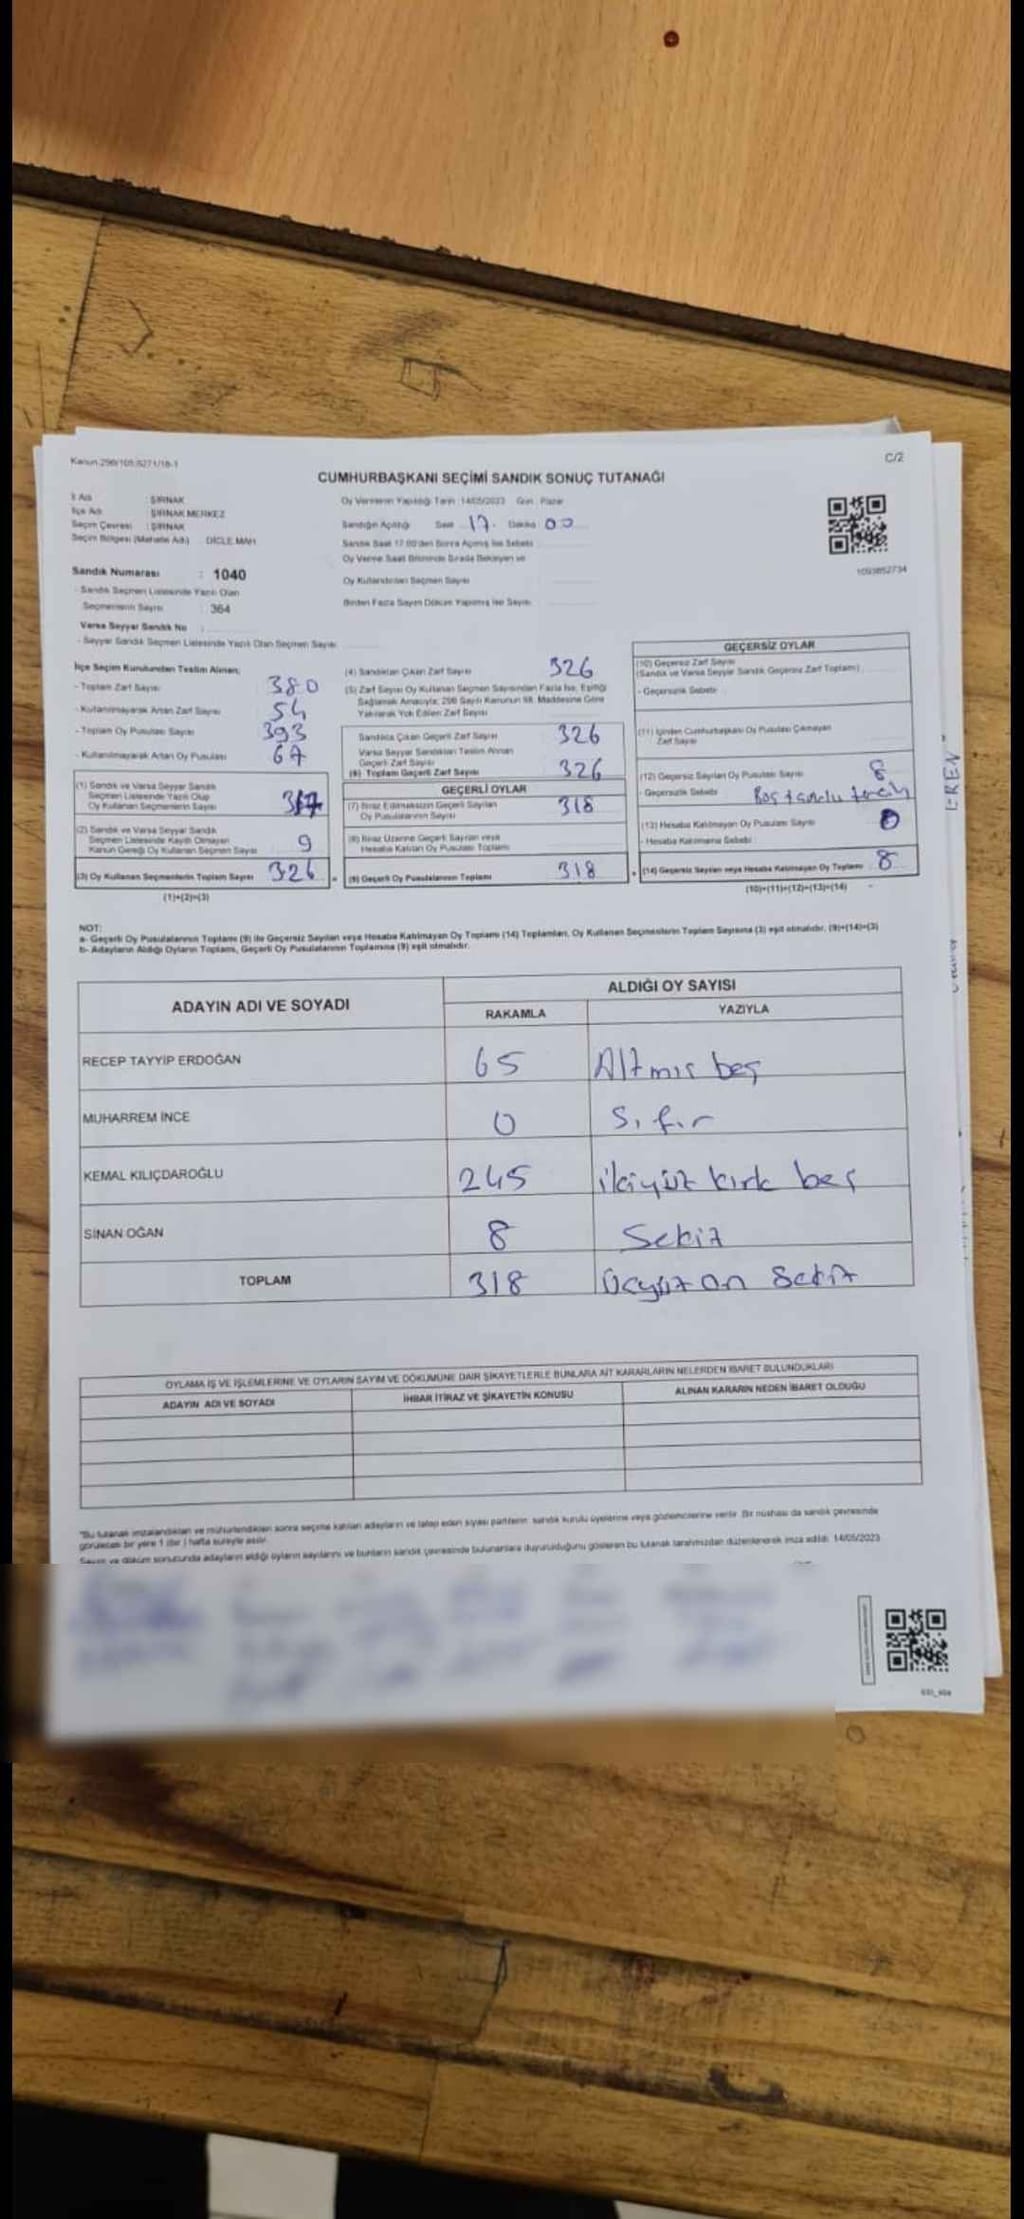 Kanun:298/105;6271/18-1
C/2
CUMHURBAŞKANI SEÇİMİ SANDIK SONUÇ TUTANAĞI
İl Adı : ŞIRNAK
İlçe Adı : ŞIRNAK MERKEZ
Seçim Çevresi : ŞIRNAK
Seçim Bölgesi (Mahalle Adı) : DİCLE MAH.
Sandık Numarası : 1040
- Sandık Seçmen Listesinde Yazılı Olan
Seçmenlerin Sayısı : 364
Varsa Seyyar Sandık No :
- Seyyar Sandık Seçmen Listesinde Yazılı Olan Seçmen Sayısı
Oy Vermenin Yapıldığı Tarih :14/05/2023 Gün : Pazar
Sandığın Açıldığı Saat 17. Dakika 00
Sandık Saat 17:00'den Sonra Açılmış İse Sebebi
Oy Verme Saati Bitiminde Sırada Bekleyen ve
Oy Kullandırılan Seçmen Sayısı
Birden Fazla Sayım Döküm Yapılmış İse Sayısı
1093852734
İlçe Seçim Kurulundan Teslim Alınan;
- Toplam Zarf Sayısı 380
- Kullanılmayarak Artan Zarf Sayısı 54
- Toplam Oy Pusulası Sayısı 393
- Kullanılmayarak Artan Oy Pusulası 67
(1) Sandık ve Varsa Seyyar Sandık
Seçmen Listesinde Yazılı Olup
Oy Kullanan Seçmenlerin Sayısı 317
(2) Sandık ve Varsa Seyyar Sandık
Seçmen Listesinde Kayıtlı Olmayan
Kanun Gereği Oy Kullanan Seçmen Sayısı 9
(3) Oy Kullanan Seçmenlerin Toplam Sayısı 326
(1)+(2)=(3)
(4) Sandıktan Çıkan Zarf Sayısı 326
(5) Zarf Sayısı Oy Kullanan Seçmen Sayısından Fazla İse, Eşitliği
Sağlamak Amacıyla; 298 Sayılı Kanunun 98. Maddesine Göre
Yakılarak Yok Edilen Zarf Sayısı
Sandıkta Çıkan Geçerli Zarf Sayısı 326
Varsa Seyyar Sandıktan Teslim Alınan
Geçerli Zarf Sayısı
(6) Toplam Geçerli Zarf Sayısı 326
GEÇERLİ OYLAR
(7) İtiraz Edilmeksizin Geçerli Sayılan
Oy Pusulalarının Sayısı 318
(8) İtiraz Üzerine Geçerli Sayılan veya
Hesaba Katılan Oy Pusulası Toplamı
(9) Geçerli Oy Pusulalarının Toplamı 318
GEÇERSİZ OYLAR
(10) Geçersiz Zarf Sayısı
(Sandık ve Varsa Seyyar Sandık Geçersiz Zarf Toplamı)
- Geçersizlik Sebebi
(11) İçinden Cumhurbaşkanı Oy Pusulası Çıkmayan
Zarf Sayısı
(12) Geçersiz Sayılan Oy Pusulası Sayısı 8
- Geçersizlik Sebebi
(13) Hesaba Katılmayan Oy Pusulası Sayısı 0
- Hesaba Katılmama Sebebi
(14) Geçersiz Sayılan veya Hesaba Katılmayan Oy Toplamı 8
(10)+(11)+(12)+(13)=(14)
NOT:
a- Geçerli Oy Pusulalarının Toplamı (9) ile Geçersiz Sayılan veya Hesaba Katılmayan Oy Toplamı (14) Toplamları, Oy Kullanan Seçmenlerin Toplam Sayısına (3) eşit olmalıdır. (9)+(14)=(3)
b- Adayların Aldığı Oyların Toplamı, Geçerli Oy Pusulalarının Toplamına (9) eşit olmalıdır.
ADAYIN ADI VE SOYADI
ALDIĞI OY SAYISI
RAKAMLA YAZIYLA
RECEP TAYYİP ERDOĞAN 65 Altmış beş
MUHARREM İNCE 0 Sıfır
KEMAL KILIÇDAROĞLU 245 ikiyüz kırk beş
SİNAN OĞAN 8 Sekiz
TOPLAM 318 Üçyüz on Sekiz
OYLAMA İŞ VE İŞLEMLERİNE VE OYLARIN SAYIM VE DÖKÜMÜNE DAİR ŞİKAYETLERLE BUNLARA AİT KARARLARIN NELERDEN İBARET BULUNDUKLARI
ADAYIN ADI VE SOYADI İHBAR İTİRAZ VE ŞİKAYETİN KONUSU ALINAN KARARIN NEDEN İBARET OLDUĞU
"Bu tutanak imzalandıktan ve mühürlendikten sonra seçime katılan adayların ve talep eden siyasi partilerin sandık kurulu üyelerine veya gözlemcilerine verilir. Bir nüshası da sandık çevresinde
görülebilen bir yere 1 (bir) hafta süreyle asılır.
Sayım ve döküm sonucunda adayların aldığı oyların sayılarını ve bunların sandık çevresinde bulunanlara duyurulduğunu gösteren bu tutanak tarafımızdan düzenlenerek imza edildi. 14/05/2023
EREN